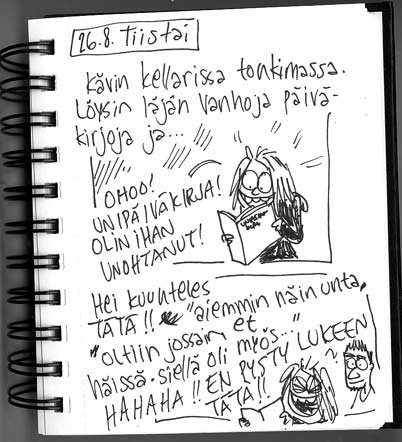 26.8. Tiistai
Kävin kellarissa tonkimassa.
Löysin läjän vanhoja päivä-
kirjoja ja...
OHOO!
UNIPÄIVÄKIRJA!
OLIN IHAN
UNOHTANUT!
Hei kuuntele
TÄTÄ!! "aiemmin näin unta,
et
oltiin jossain
häissä. siellä oli myös..."
HAHAHA!! EN PYSTY LUKEEN
TÄTÄ!!
?